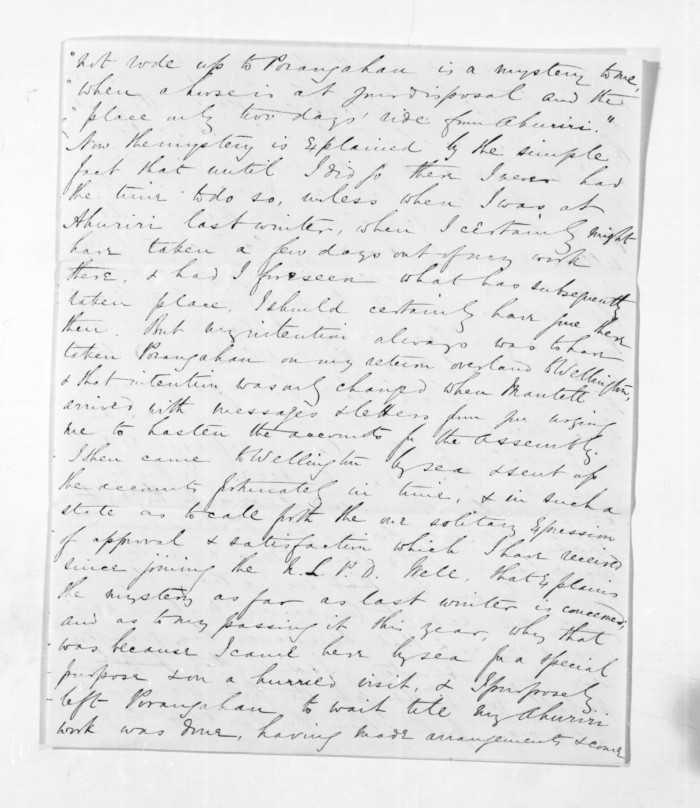 "not rode up to Porangahau is a mystery to me,
"when a horse is at your disposal and the
"place only two days' ride from Ahuriri."
Now the mystery is explained by the simple
fact that until I did so there I never had
the time to do so, unless when I was at
Ahuriri last winter, when I certainly might
have taken a few days out of my work
there, & had I foreseen what has subsequently
taken place, I should certainly have gone there
then. But my intention always was to have
taken Porangahau on my return overland to Wellington,
& that intention was only changed when Mantell
arrived with messages & letters from you urging
me to hasten the accounts for the Assembly.
I then came to Wellington by sea & sent up
the accounts fortunately in time, & in such a
state as to call forth the one solitary expression
of approval & satisfaction which I have received
since joining the N.L.P.D. Well, that explains
the mystery as far as last winter is concerned,
and as to my passing it this year, why that
was because I came here by sea for a special
purpose & on a hurried visit, & I purposely
left Porangahau to wait till my Ahuriri
work was done, having made arrangements & come